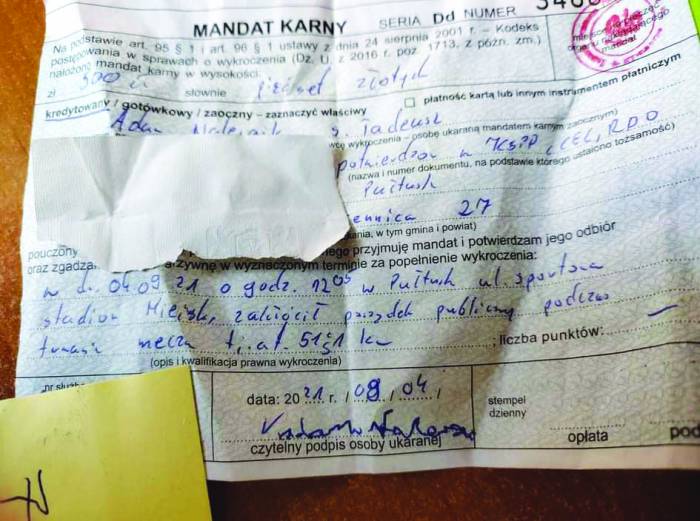 MANDAT KARNY SERIA Dd NUMER
Na podstawie art. 95 § 1 i art. 96 § 1 ustawy z dnia 24 sierpnia 2001 r. – Kodeks
postępowania w sprawach o wykroczenia (Dz. U. z 2016 r. poz. 1713, z późn. zm.)
nałożono mandat karny w wysokości:
zł 500 słownie pięćset złotych
kredytowany / gotówkowy / zaoczny – zaznaczyć właściwy
płatność kartą lub innym instrumentem płatniczym
Adam s. Tadeusz
wykroczenia – osobę ukaraną mandatem karnym zaocznym)
potwierdzon w KSIP
(nazwa i numer dokumentu, na podstawie którego ustalono tożsamość)
Pułtusk
ennica 27
ania, w tym gmina i powiat)
pouczony ego przyjmuję mandat i potwierdzam jego odbiór
oraz zgadza zywnę w wyznaczonym terminie za popełnienie wykroczenia:
w dn. 04 09 21 o godz. 12 05 w Pułtusk ul. sportowa
stadion Miejski zakłócił porządek publiczny podczas
trwania meczu tj. art. 51§1 kw
liczba punktów: —
(opis i kwalifikacja prawna wykroczenia)
nr służb
data: 2021 r. / 09 / 04 /
czytelny podpis osoby ukaranej
stempel
dzienny
opłata
pod